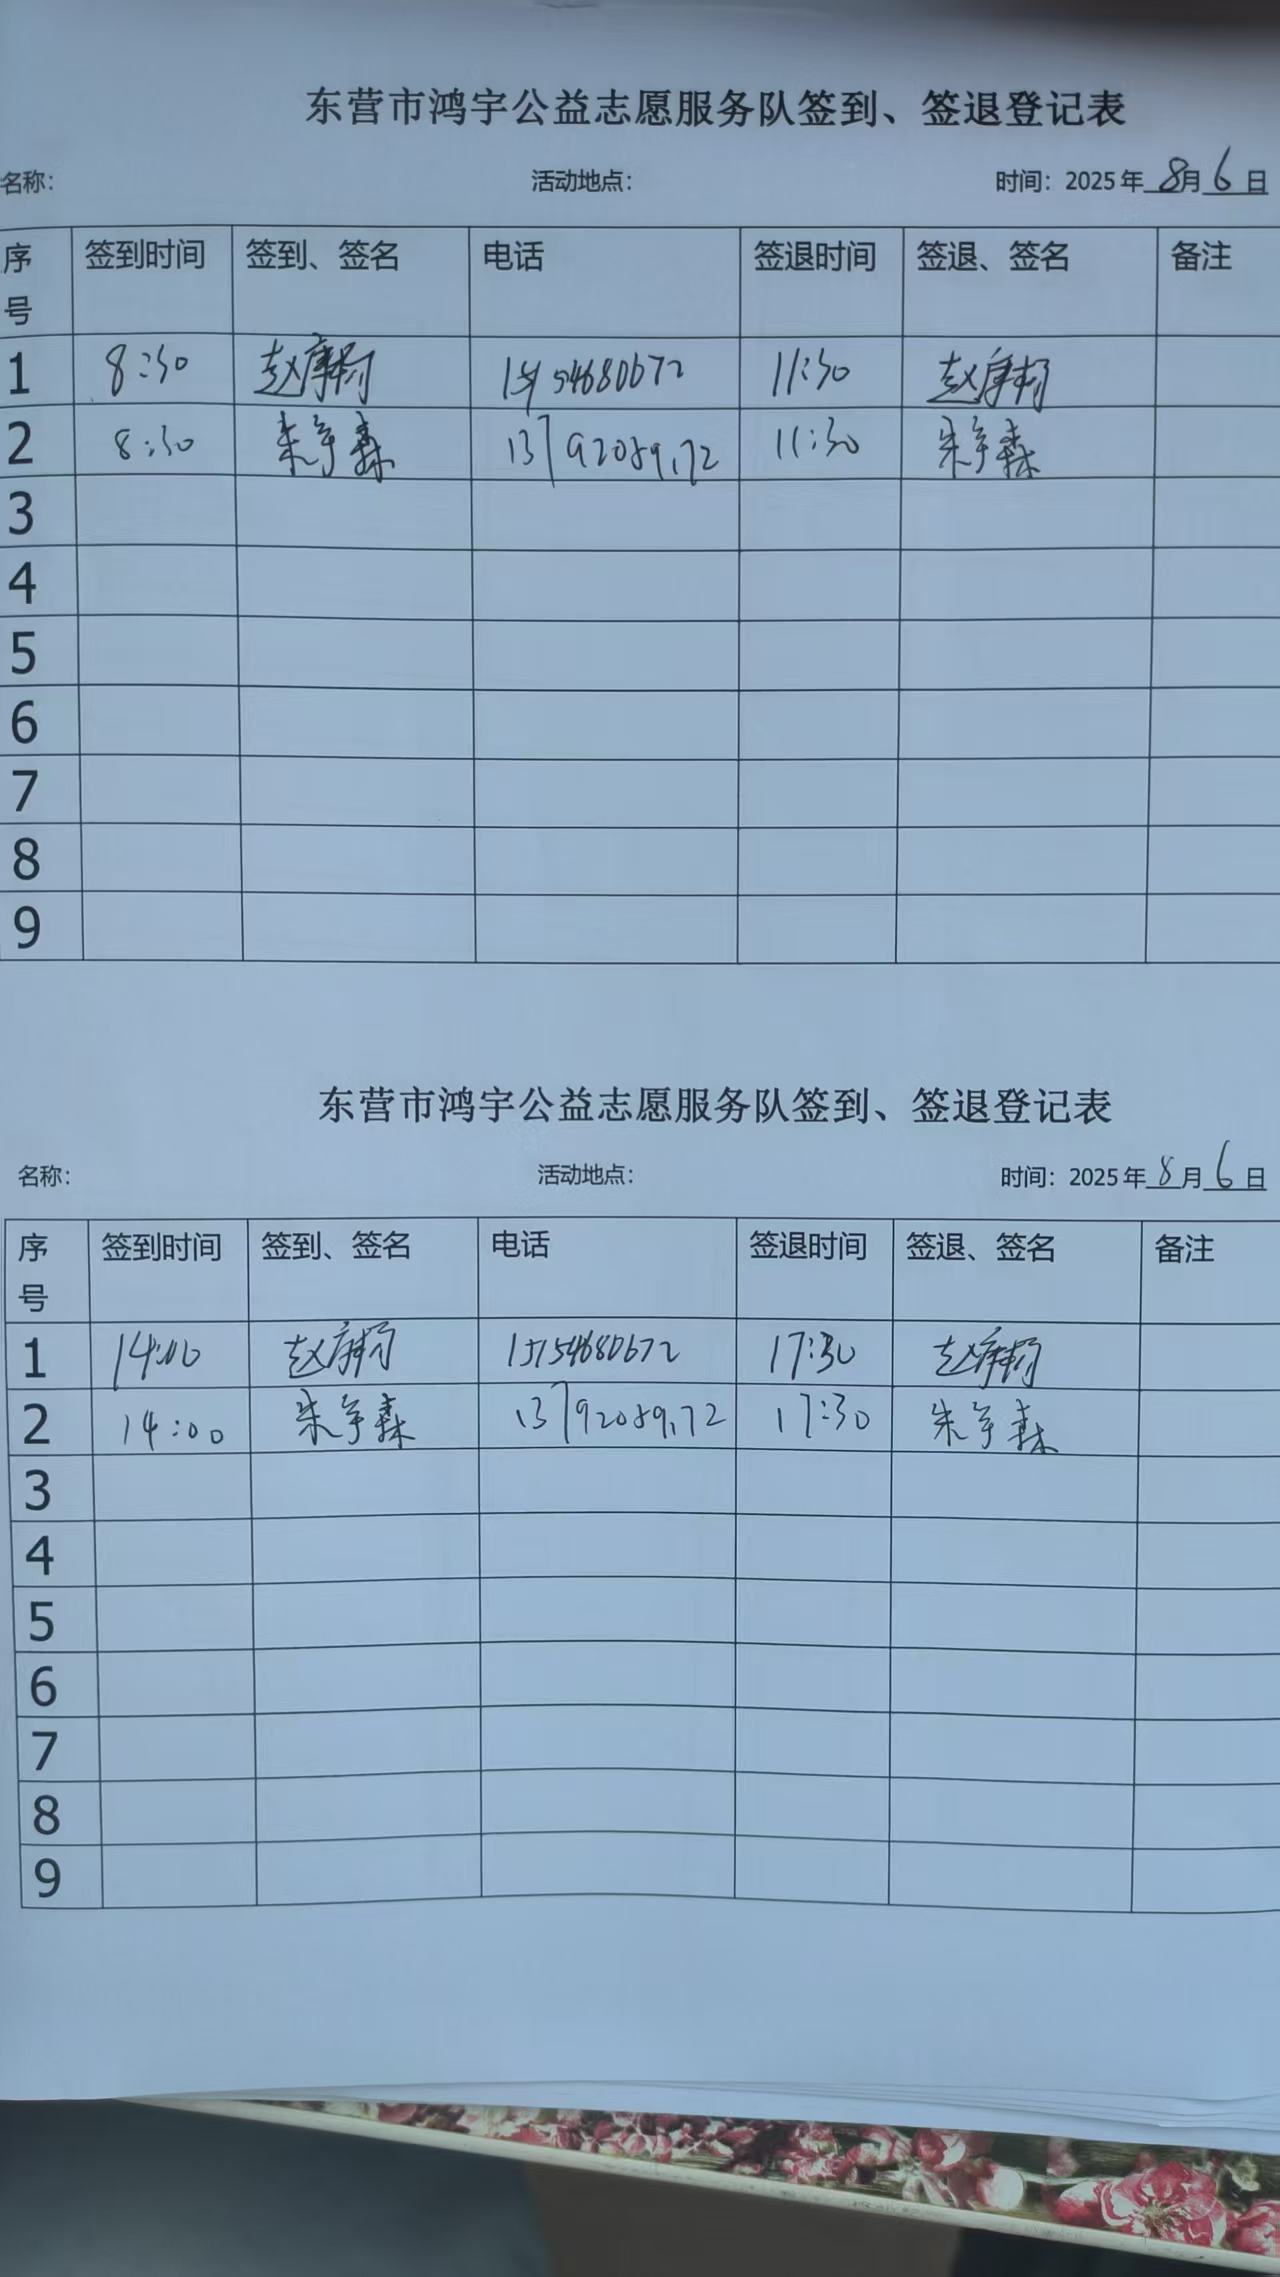 东营市鸿宇公益志愿服务队签到、签退登记表
名称： 活动地点： 时间：2025年 8月 6日
序号 签到时间 签到、签名 电话 签退时间 签退、签名 备注
1 8:30 赵 15154680672 11:30 赵
2 8:30 朱争森 13792089172 11:30 朱争森
3
4
5
6
7
8
9
东营市鸿宇公益志愿服务队签到、签退登记表
名称： 活动地点： 时间：2025年 8月 6日
序号 签到时间 签到、签名 电话 签退时间 签退、签名 备注
1 14:00 赵 15154680672 17:30 赵
2 14:00 朱争森 13792089172 17:30 朱争森
3
4
5
6
7
8
9